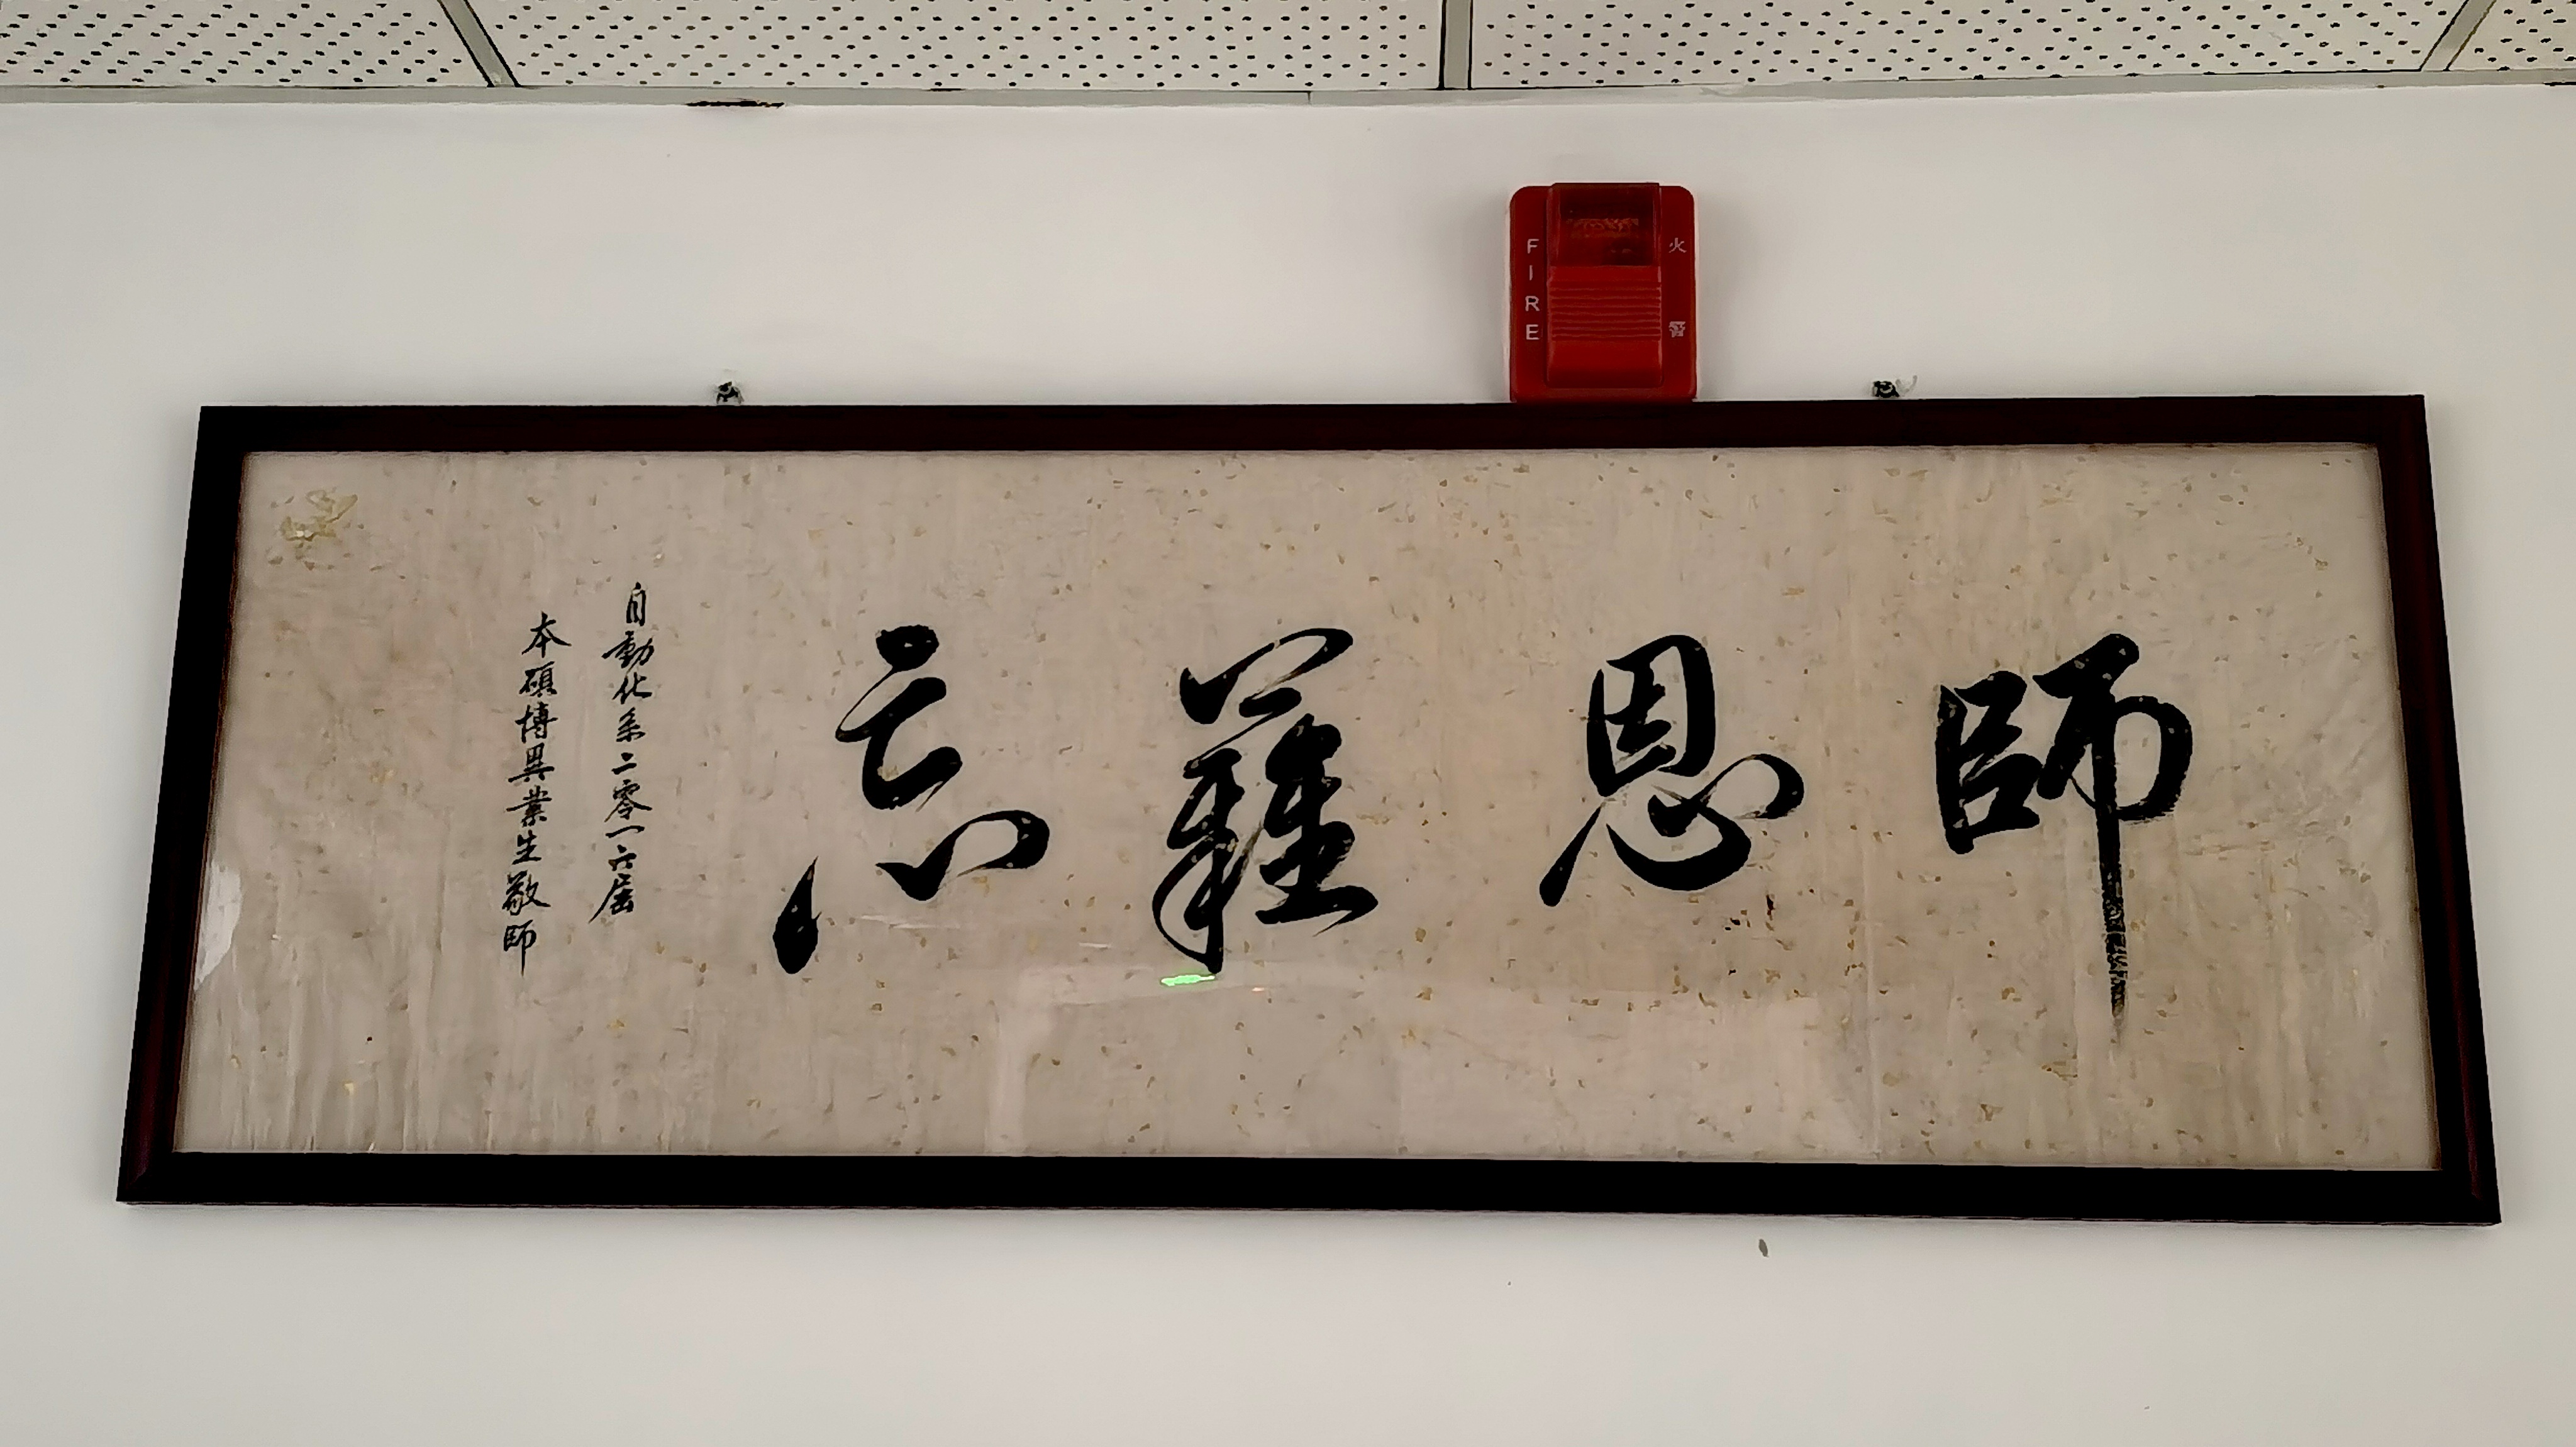 FIRE
火警
師恩難忘
自動化系二零一六屆
本碩博畢業生敬師